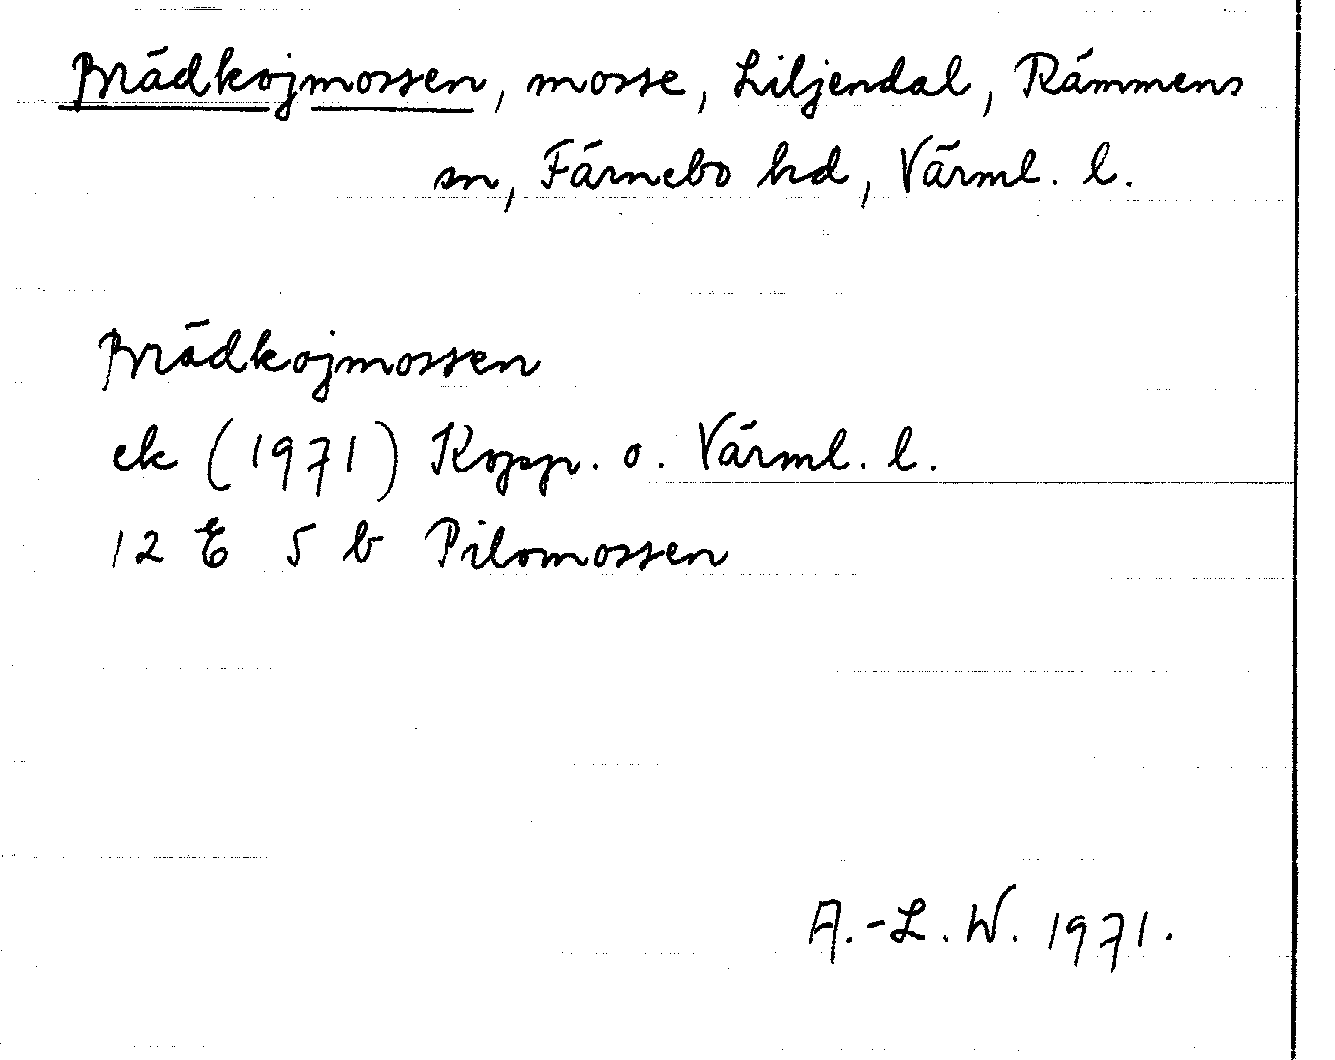 Brädkojmossen, mosse, Liljendal, Rämmens
sn, Färnebo hd, Värml. l.
Brädkojmossen
ek (1971) Kopp. o. Värml. l.
12 E 5 b Pilomossen
A.-L. W. 1971.